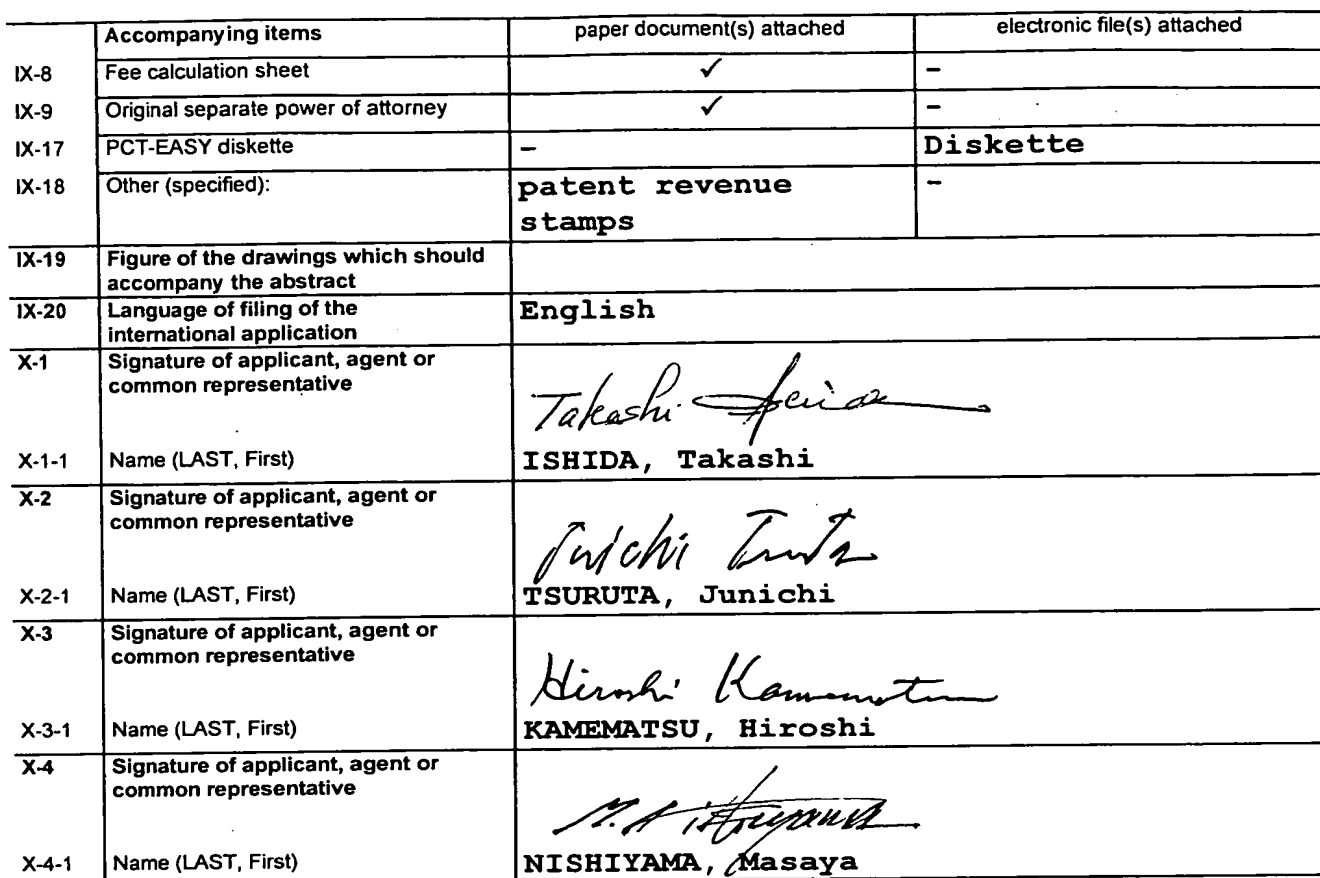 Accompanying items paper document(s) attached electronic file(s) attached
IX-8 Fee calculation sheet ✓ –
IX-9 Original separate power of attorney ✓ –
IX-17 PCT-EASY diskette – Diskette
IX-18 Other (specified): patent revenue –
stamps
IX-19 Figure of the drawings which should
accompany the abstract
IX-20 Language of filing of the English
international application
X-1 Signature of applicant, agent or
common representative
Takashi Ishida
X-1-1 Name (LAST, First) ISHIDA, Takashi
X-2 Signature of applicant, agent or
common representative
Junichi Tsuruta
X-2-1 Name (LAST, First) TSURUTA, Junichi
X-3 Signature of applicant, agent or
common representative
Hiroshi Kamematsu
X-3-1 Name (LAST, First) KAMEMATSU, Hiroshi
X-4 Signature of applicant, agent or
common representative
M. Nishiyama
X-4-1 Name (LAST, First) NISHIYAMA, Masaya